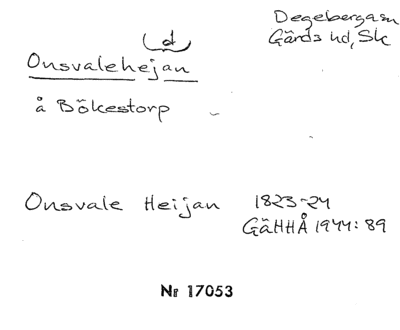 Degeberga sn
Gärds hd, Sk
(d)
Onsvalehejan
å Bökestorp
Onsvale Heijan 1823-24
GäHHÅ 1944:89
Nr 17053